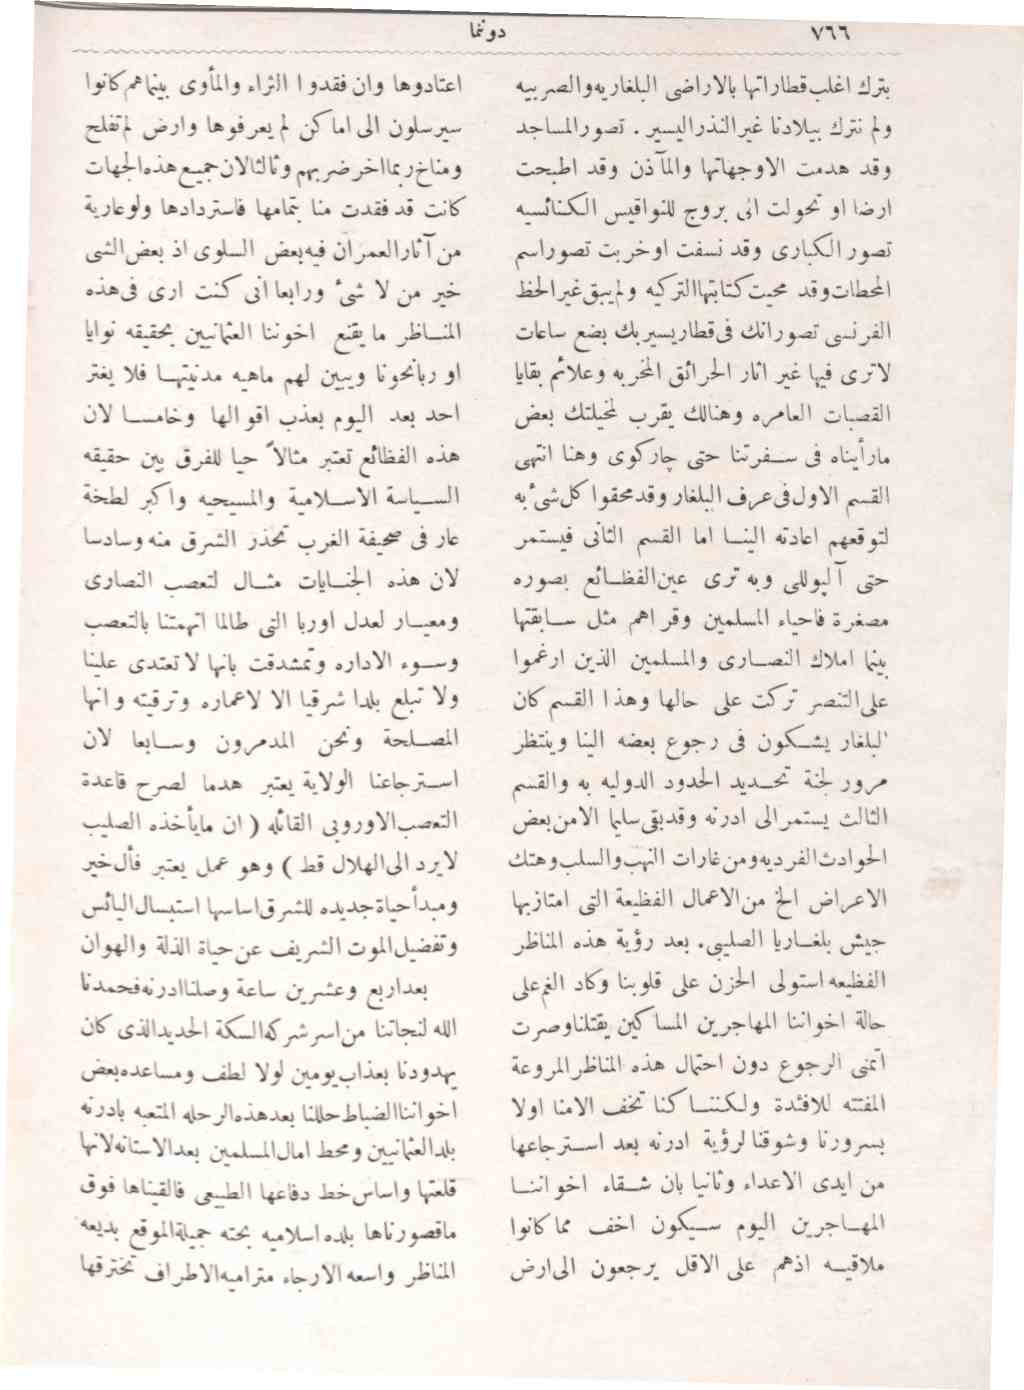 ٧٦٦
دونما
بترك اغلب قطاراتها بالاراضى البلغاريه والصربيه
ولم نترك ببلادنا غير النذر اليسير . تصور المساجد
وقد هدمت الا وجهاتها والمآذن وقد اطبحت
ارضا او تحولت الى بروج للنواقيس الكنائسيه
تصور الكبارى وقد نسفت او خربت تصور اسم
المحطات وقد محيت كتابتها التركيه ولم يبق غير الحظ
الفرنسى تصور انك فى قطار يسير بك بضع ساعات
لاترى فيها غير اثار الحرائق المخربه وعلائم بقايا
القصبات العامره وهنالك يقرب لمخيلتك بعض
مارأيناه فى سفرتنا حتى چاركوى وهنا انتهى
القسم الاول فى عرف البلغار وقد محقوا كل شئ به
لتوقعهم اعادته الينا اما القسم الثانى فيستمر
حتى آلپوللى وبه ترى عين الفظائع بصوره
مصغرة فاحياء المسلمين وقراهم مثل سابقتها
بينما املاك النصارى والمسلمين الذين ارغموا
على التنصر تركت على حالها وهذا القسم كان
البلغار يشكون فى رجوع بعضه الينا وينتظر
مرور لجنة تحديد الحدود الدوليه به والقسم
الثالث يستمر الى ادرنه وقد بقى سليما الا من بعض
الحوادث الفرديه ومن غارات النهب والسلب وهتك
الاعراض الخ من الاعمال الفظيعة التى امتاز بها
جيش بلغاريا الصليبى. بعد رؤية هذه المناظر
الفظيعه استولى الحزن على قلوبنا وكاد الغم على
حالة اخواننا المهاجرين المساكين يقتلنا وصرت
اتمنى الرجوع دون احتمال هذه المناظر المروعة
المفتته للافئدة ولكننا كنا تخف الامنا اولا
بسرورنا وشوقنا لرؤية ادرنه بعد استرجاعها
من ايدى الاعداء وثانيا بان شقاء اخواننا
المهاجرين اليوم سيكون اخف مما كانوا
ملاقيه اذهم على الاقل يرجعون الى ارض
اعتادوها وان فقدوا الثراء والمأوى بينما هم كانوا
سيرسلون الى اماكن لم يعرفوها وارض لم تفلح
ومناخ ربما اخر ضربهم وثالثا لان جميع هذه الجهات
كانت قد فقدت منا بتمامها فاستردادها ولو عارية
من آثار العمران فيه بعض السلوى اذ بعض الشى
خير من لا شئ ورابعا انى كنت ارى فى هذه
المناظر ما يقنع اخوننا العثمانيين بحقيقه نوايا
اوربا نحونا ويبين لهم ماهيه مدنيتها فلا يغتر
احد بعد اليوم بعذب اقوالها وخامسا لان
هذه الفظائع تعتبر مثالاً حيا للفرق بين حقيقه
السياسة الاسلامية والمسيحيه واكبر لطخة
عار فى صحيفة الغرب تحذر الشرق منه وسادسا
لان هذه الجنايات مثال لتعصب النصارى
ومعيار لعدل اوربا التى طالما اتهمتنا بالتعصب
وسوء الاداره وتمشدقت بانها لا تعتدى علينا
ولا تبلع بلدا شرقيا الا لاعماره وترقيته وانها
المصلحة ونحن المدمرون وسابعا لان
استرجاعنا الولاية يعتبر هدما لصرح قاعدة
التعصب الاوروبى القائله ( ان ما يأخذه الصليب
لا يرد الى الهلال قط ) وهو عمل يعتبر فأل خير
ومبدأ حياة جديده للشرق اساسها استبسال اليائس
وتفضيل الموت الشريف عن حياة الذلة والهوان
بعد اربع وعشرين ساعة وصلنا ادرنه فحمدنا
الله لنجاتنا من اسر شركه السكة الحديد الذى كان
يهدودنا بعذاب يومين لولا لطف ومساعده بعض
اخواننا الضباط حللنا بعد هذه الرحله المتعبه بادرنه
بلد العثمانيين ومحط امال المسلمين بعد الاستانه لانها
قلعتها واساس خط دفاعها الطبيعى فالقيناها فوق
ماقصورناها بلده اسلاميه بحته جميلة الموقع بديعه
المناظر واسعه الارجاء متراميه الاطراف تخترقها